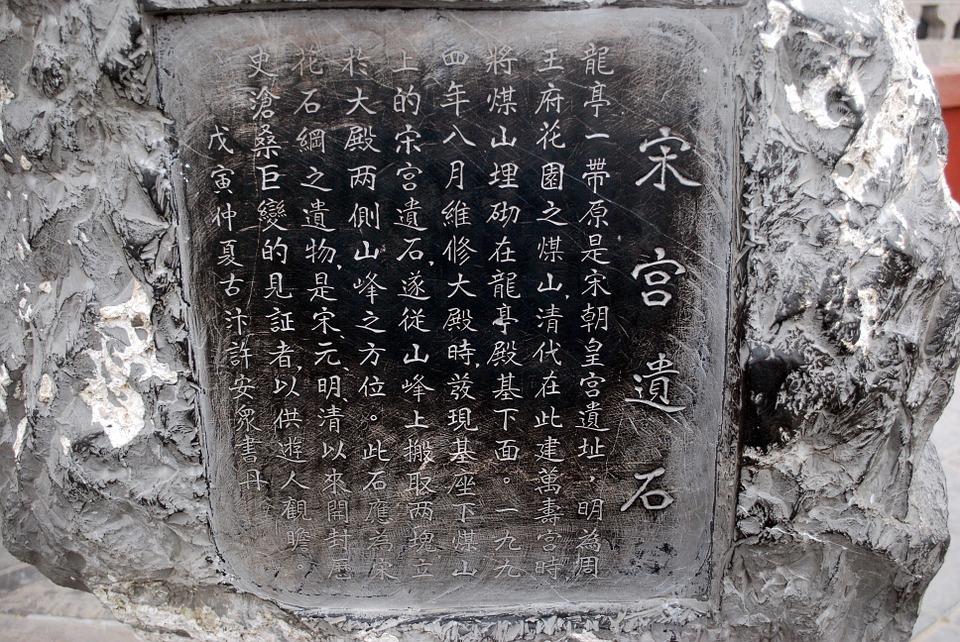 宋宮遺石
龍亭一帶原是宋朝皇宮遺址，明為周
王府花園之煤山，清代在此建萬壽宮時
將煤山埋砌在龍亭殿基下面。一九九
四年八月維修大殿時，發現基座下煤山
上的宋宮遺石，遂從山峰上搬取两塊立
於大殿两側山峰之方位。此石應為宋
花石綱之遺物，是宋、元、明、清以來開封歷
史滄桑巨變的見証者，以供遊人觀瞻。
戊寅仲夏古汴許安眾書丹